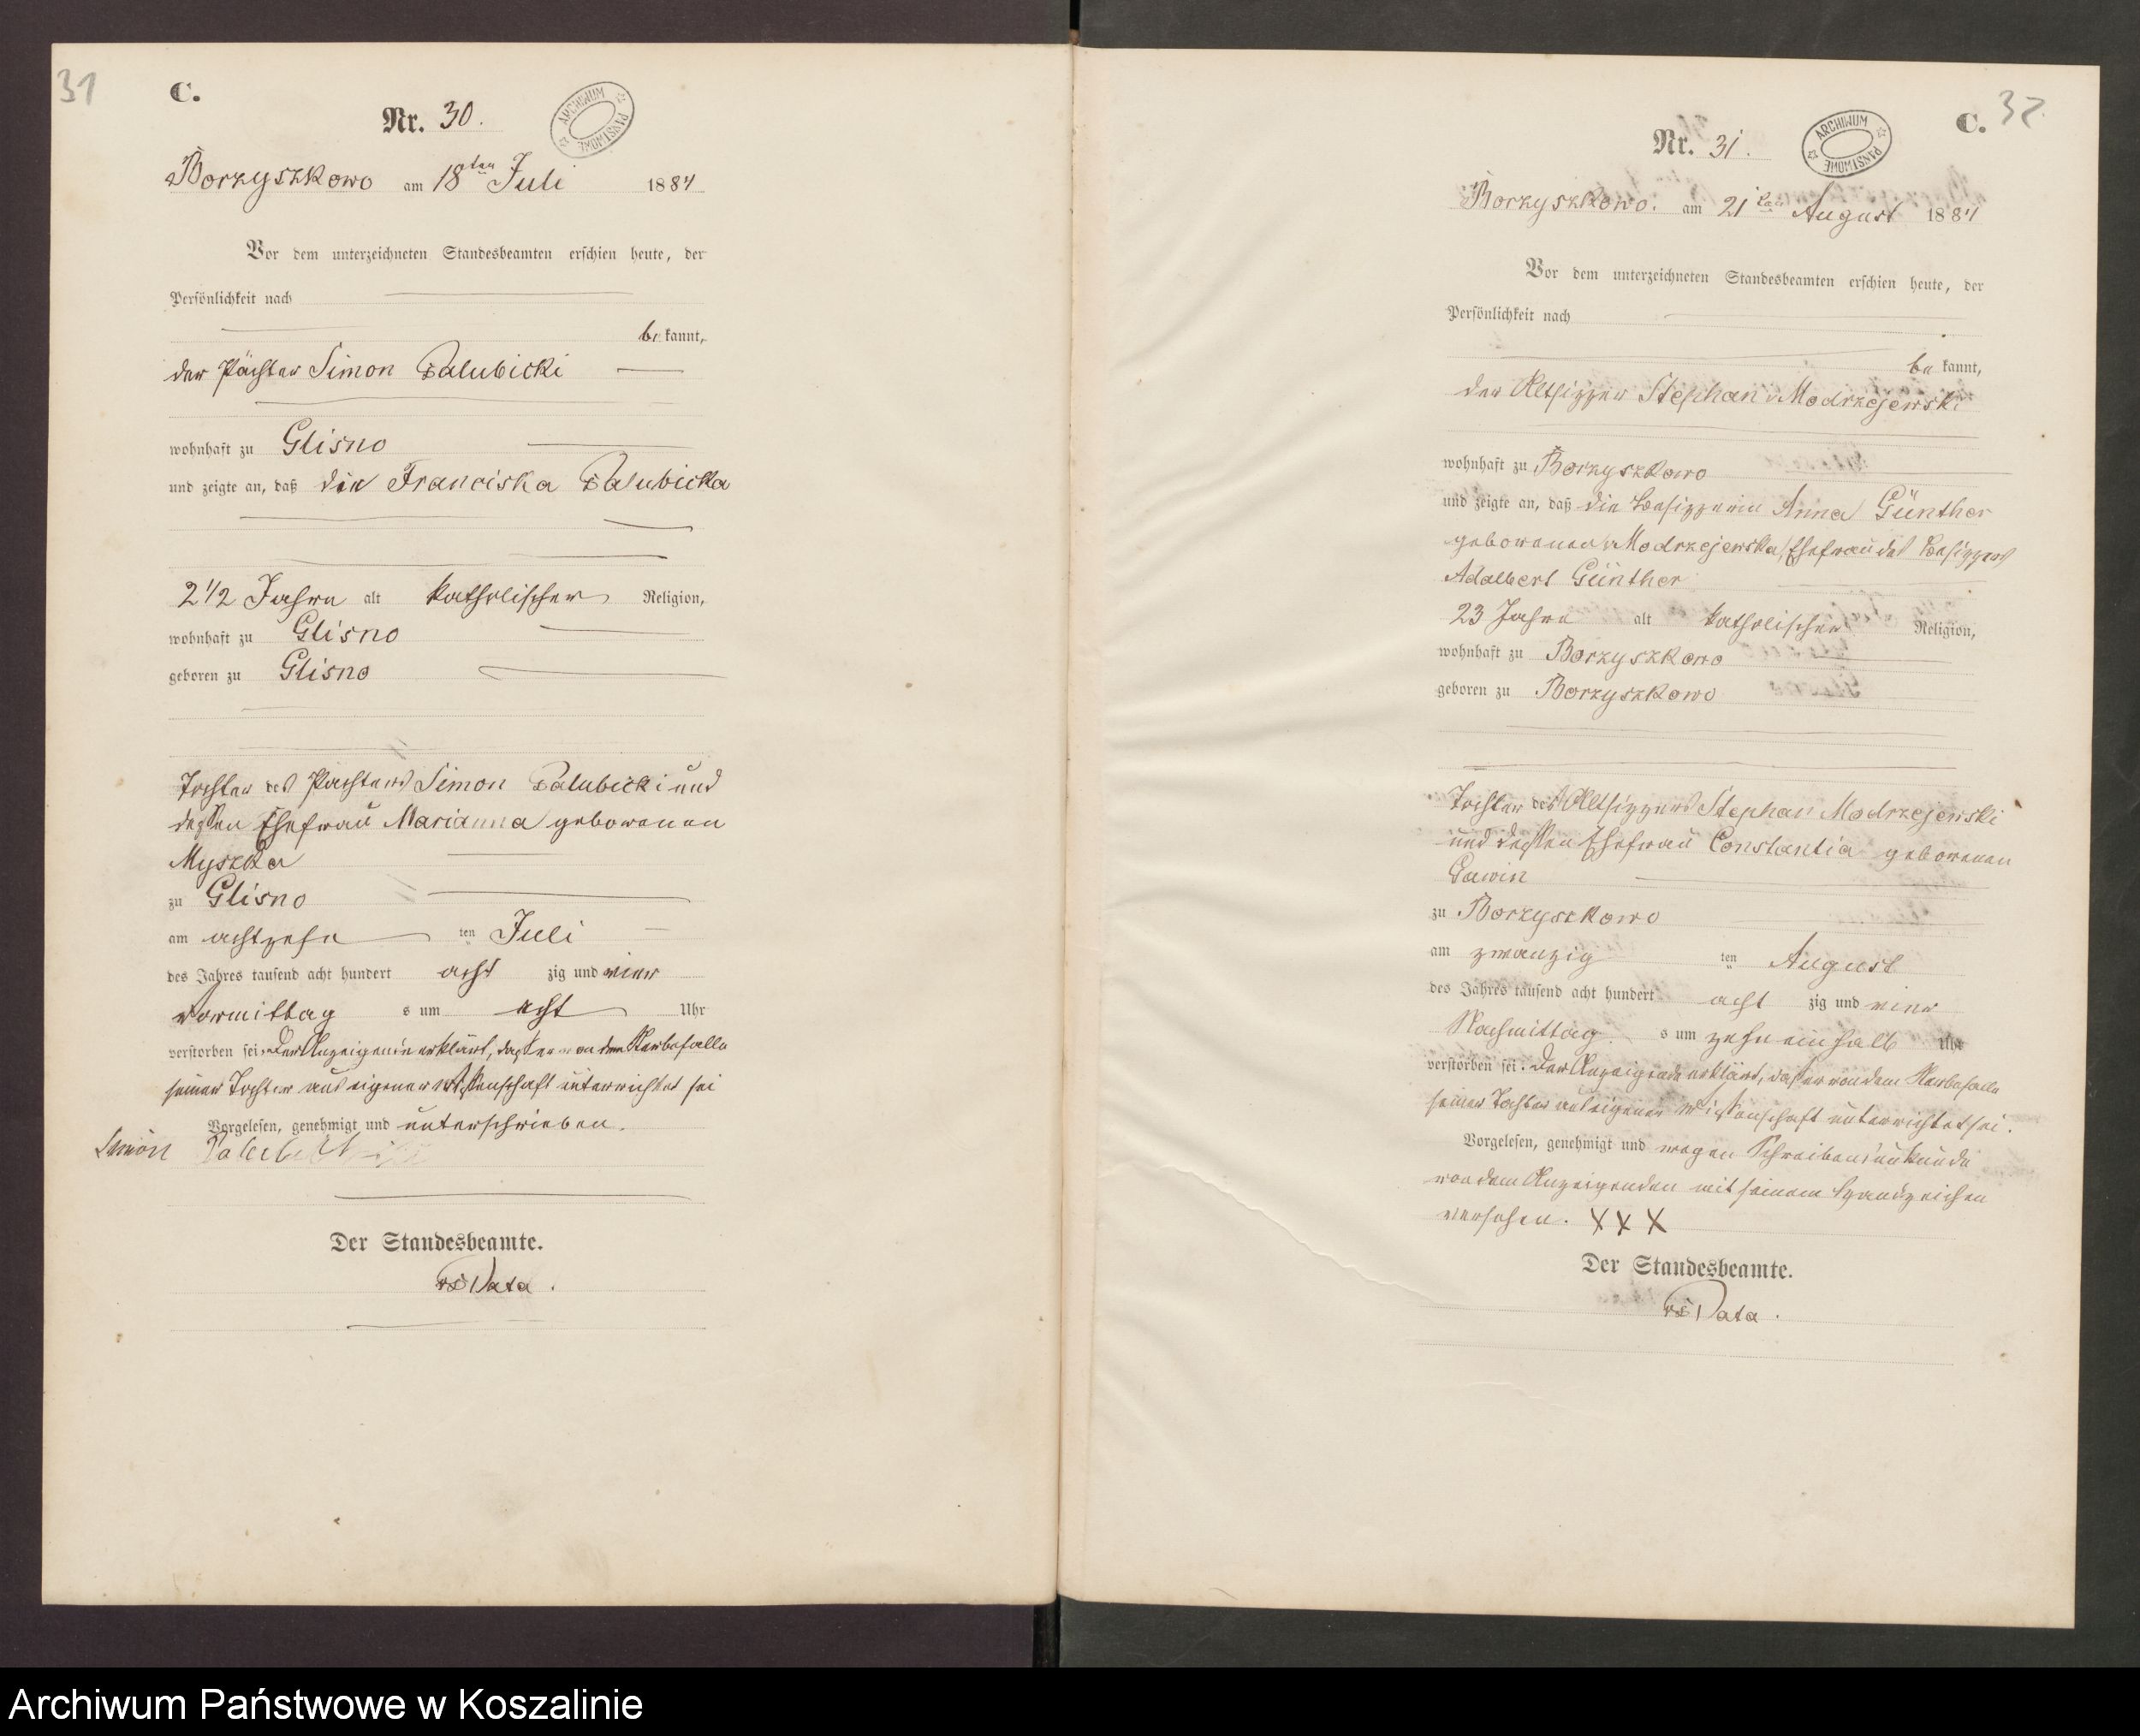 31
C.
Nr. 30.
ARCHIWUM PAŃSTWOWE
Borzyszkowo am 18ten Juli 1884
Vor dem unterzeichneten Standesbeamten erschien heute, der
Persönlichkeit nach
be kannt,
der Pächter Simon Palubicki
wohnhaft zu Glisno
und zeigte an, daß die Franciska Palubicka
2 1/2 Jahre alt katholischer Religion,
wohnhaft zu Glisno
geboren zu Glisno
Tochter des Pächters Simon Palubicki und
dessen Ehefrau Marianna geborenen
Myszka
zu Glisno
am achtzehn ten Juli
des Jahres tausend acht hundert acht zig und vier
Vormittag s um acht Uhr
verstorben sei. Der Anzeigende erklärt, daß er von dem Sterbefalle
seiner Tochter aus eigener Wissenschaft unterrichtet sei
Vorgelesen, genehmigt und unterschrieben.
Simon Palubicki
Der Standesbeamte.
Data.
32
C.
Nr. 31.
ARCHIWUM PAŃSTWOWE
Borzyszkowo. am 21ten August 1884
Vor dem unterzeichneten Standesbeamten erschien heute, der
Persönlichkeit nach
be kannt,
der Altsitzer Stephan Modrzejewski
wohnhaft zu Borzyszkowo
und zeigte an, daß die Besitzerin Anna Günther
geborenen Modrzejewska, Ehefrau des Besitzers
Adalbert Günther
23 Jahre alt katholischer Religion,
wohnhaft zu Borzyszkowo
geboren zu Borzyszkowo
Tochter des Altsitzers Stephan Modrzejewski
und dessen Ehefrau Constantia geborenen
zu Borzyszkowo
am zwanzig ten August
des Jahres tausend acht hundert acht zig und vier
Nachmittag s um zehn ein halb Uhr
verstorben sei. Der Anzeigende erklärt, daß er von dem Sterbefalle
seiner Tochter aus eigener Wissenschaft unterrichtet sei.
Vorgelesen, genehmigt und wegen Schreibensunkunde
von dem Anzeigenden mit seinem Handzeichen
versehen. X X X
Der Standesbeamte.
Data.
Archiwum Państwowe w Koszalinie